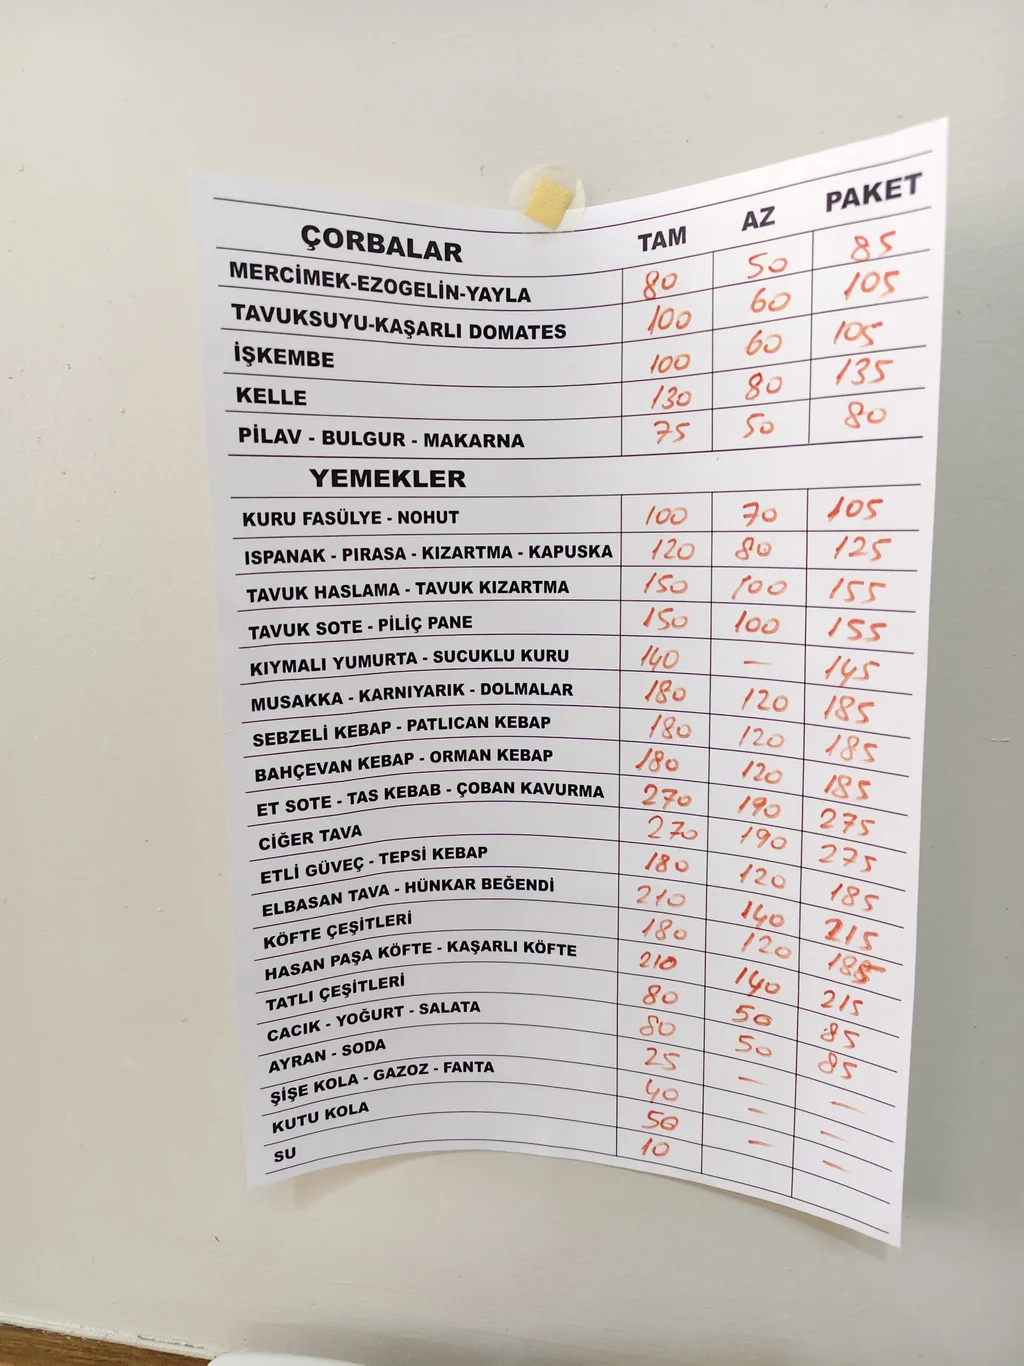 ÇORBALAR TAM AZ PAKET
MERCİMEK-EZOGELİN-YAYLA 80 50 85
TAVUKSUYU-KAŞARLI DOMATES 100 60 105
İŞKEMBE 100 60 105
KELLE 130 80 135
PİLAV - BULGUR - MAKARNA 75 50 80
YEMEKLER
KURU FASÜLYE - NOHUT 100 70 105
ISPANAK - PIRASA - KIZARTMA - KAPUSKA 120 80 125
TAVUK HASLAMA - TAVUK KIZARTMA 150 100 155
TAVUK SOTE - PİLİÇ PANE 150 100 155
KIYMALI YUMURTA - SUCUKLU KURU 140 — 145
MUSAKKA - KARNIYARIK - DOLMALAR 180 120 185
SEBZELİ KEBAP - PATLICAN KEBAP 180 120 185
BAHÇEVAN KEBAP - ORMAN KEBAP 180 120 185
ET SOTE - TAS KEBAB - ÇOBAN KAVURMA 270 190 275
CİĞER TAVA 270 190 275
ETLİ GÜVEÇ - TEPSİ KEBAP 180 120 185
ELBASAN TAVA - HÜNKAR BEĞENDİ 210 140 215
KÖFTE ÇEŞİTLERİ 180 120 185
HASAN PAŞA KÖFTE - KAŞARLI KÖFTE 210 140 215
TATLI ÇEŞİTLERİ 80 50 85
CACIK - YOĞURT - SALATA 80 50 85
AYRAN - SODA 25 — —
ŞİŞE KOLA - GAZOZ - FANTA 40 — —
KUTU KOLA 50 — —
SU 10